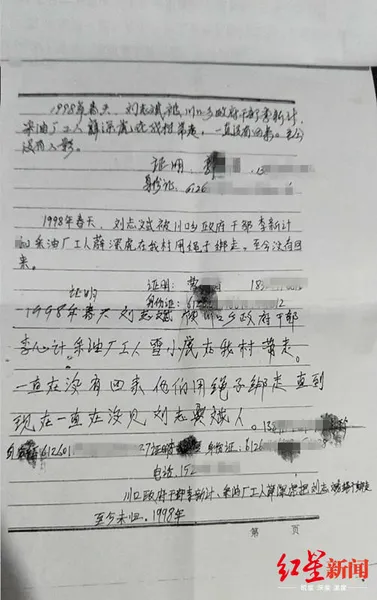 1998年春天，刘志斌被川口乡政府干部李新计，
采油厂工人薛深虎在我村带走，一直没有回来。至今
没有人影。
证明：
身份证：6126
1998年春天，刘志斌被川口乡政府干部李新计
和采油厂工人薛深虎在我村用绳子绑走。至今没有回
来。
证明： 18
证明 身份证：612 12
1998年春天刘志斌被川口乡政府干部
李心计。采油厂工人雪小虎在我村带走。
一直在没有回家他们用绳子绑走直到
现在一直在没见刘志 人。13
612601 27证明 身份证：6126
电话：152
川口政府干部李新计、采油厂工人薛深 把刘志
至今未归。1998年
第 页
红星新闻